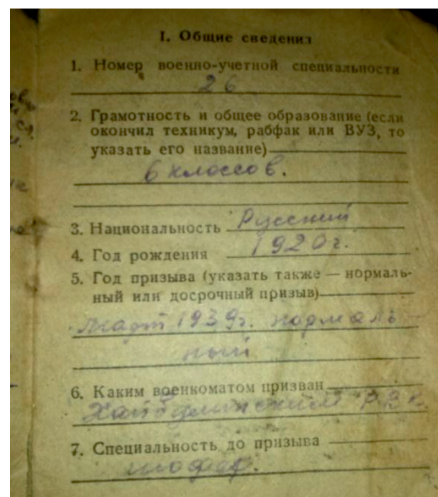 I. Общие сведения
1. Номер военно-учетной специальности
26
2. Грамотность и общее образование (если
окончил техникум, рабфак или ВУЗ, то
указать его название)
6 классов.
3. Национальность Русский
4. Год рождения 1920 г.
5. Год призыва (указать также — нормаль-
ный или досрочный призыв)
март 1939г. нормаль
ный
6. Каким военкоматом призван
Хайбулинским Р.В.К.
7. Специальность до призыва
шофер.